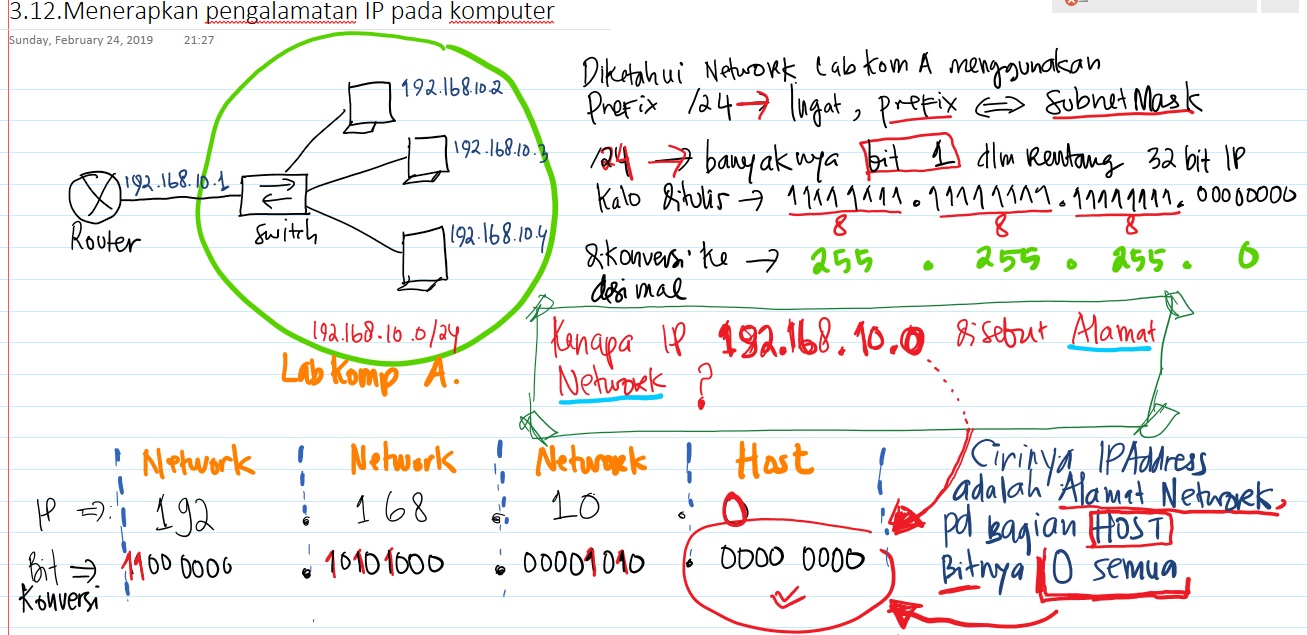 3.12.Menerapkan pengalamatan IP pada komputer
Sunday, February 24, 2019 21:27
192.168.10.2
192.168.10.3
192.168.10.1
Router
Switch
192.168.10.4
192.168.10.0/24
Lab Komp A.
Diketahui Network Lab kom A menggunakan
Prefix /24 → Ingat, prefix ⇔ Subnet Mask
/24 → banyaknya bit 1 dlm Rentang 32 bit IP
Kalo ditulis → 11111111.11111111.11111111.00000000
8 8 8
dikonversi ke → 255 . 255 . 255 . 0
desimal
Kenapa IP 192.168.10.0 disebut Alamat
Network ?
Network Network Network Host
IP ⇒: 192 . 168 . 10 . 0
Bit ⇒ 1100 0000 . 10101000 . 00001010 . 0000 0000
Konversi
Cirinya IP Address
adalah Alamat Network,
pd bagian HOST
Bitnya 0 semua